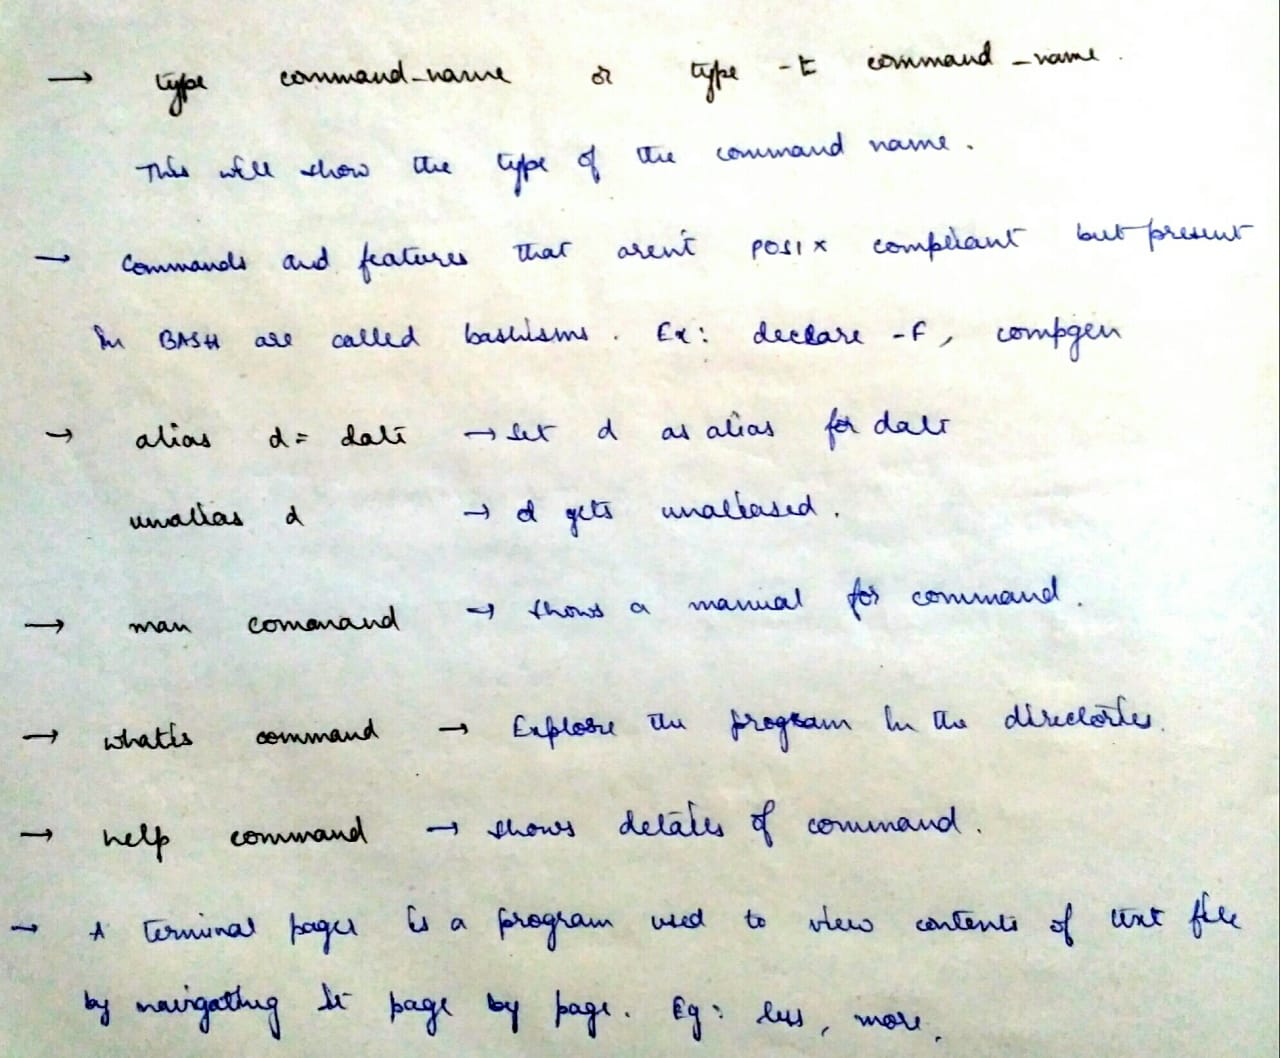 → type command-name or type -t command-name.
This will show the type of the command name.
→ Commands and features that aren't POSIX compliant but present
in BASH are called bashisms. Ex: declare -F, compgen
→ alias d= date → set d as alias for date
unalias d → d gets unaliased.
→ man command → shows a manual for command.
→ whatis command → Explore the program in the directories.
→ help command → shows details of command.
→ A terminal pager is a program used to view contents of text file
by navigating it page by page. Eg: less, more.